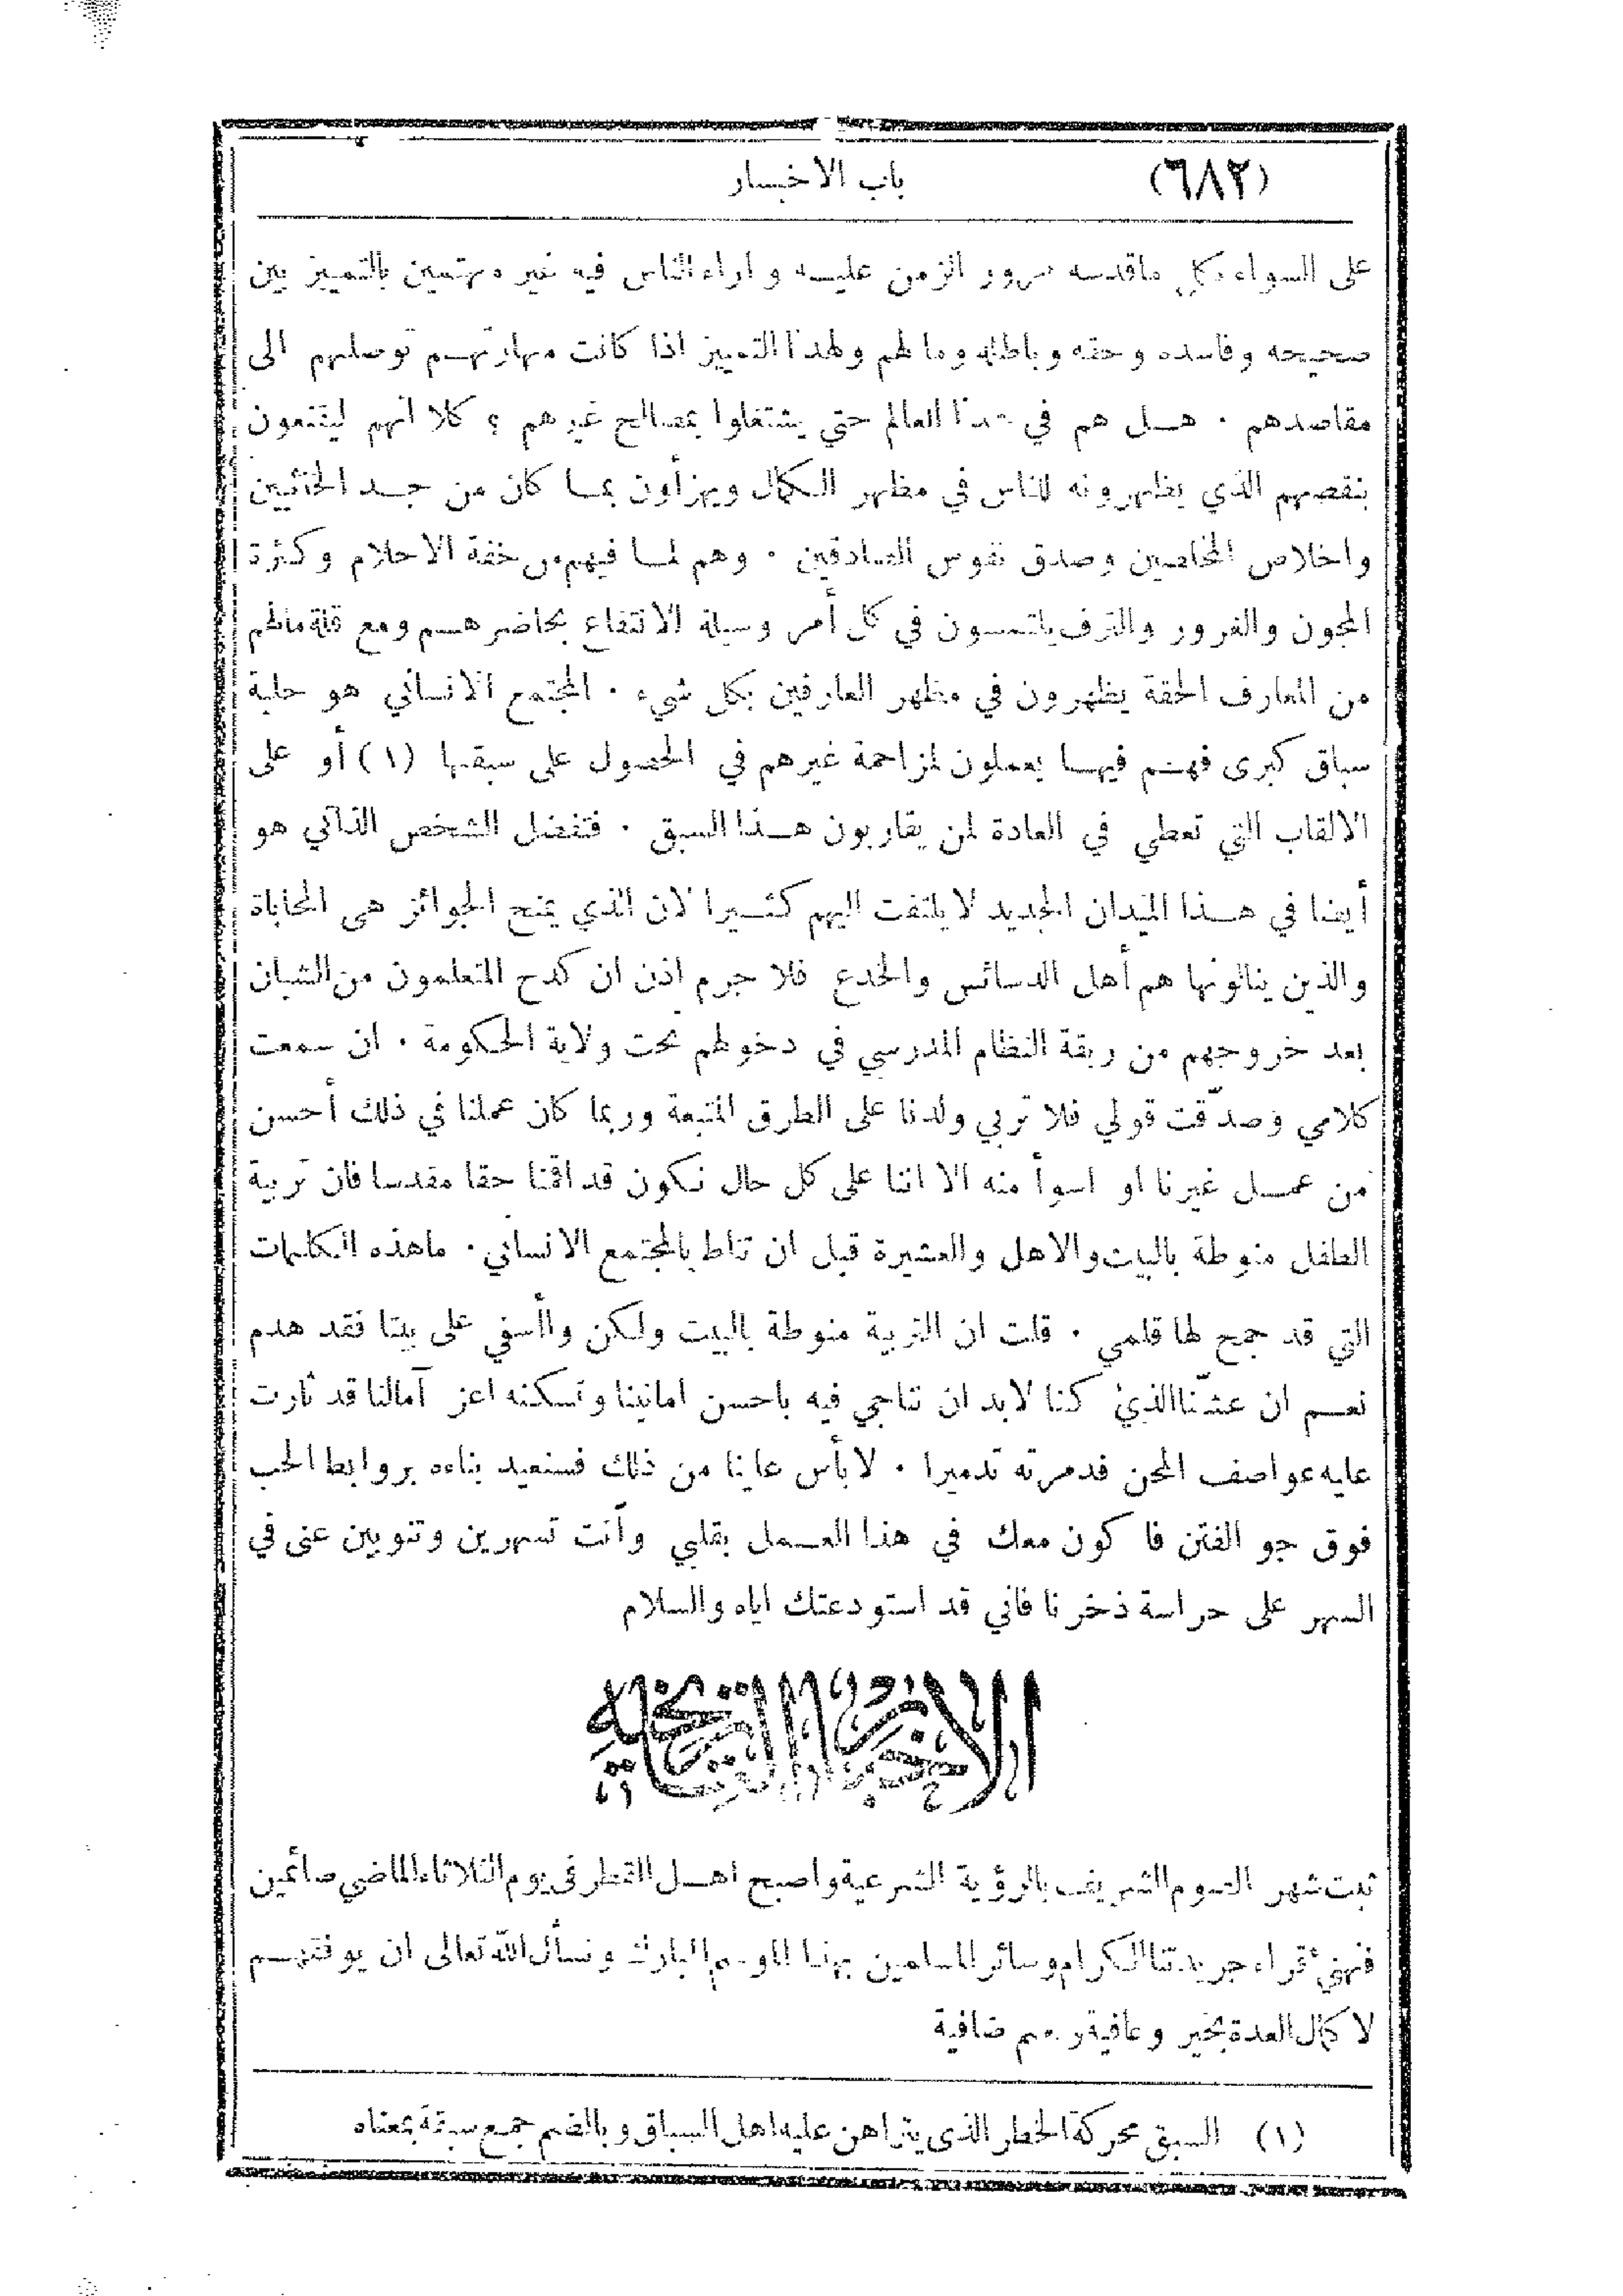 (٦٨٢) باب الاخبار
على السواء كل ماقدسه مرور الزمن عليه واراء الناس فيه غير مهتمين بالتمييز بين
صحيحه وفاسده وحقه وباطله وما لهم ولهذا التمييز اذا كانت مهارتهم توصلهم الى
مقاصدهم . هل هم في هذا العالم حتي يشتغلوا بمصالح غيرهم ؟ كلا انهم ليقنعون
بنقصهم الذي يظهرونه للناس في مظهر الكمال ويهزأون بما كان من جد
واخلاص المخلصين وصدق نفوس الصادقين . وهم لما فيهم من خفة الاحلام وكثرة
المجون والغرور والترف يلتمسون في كل أمر وسيلة الانتفاع بحاضرهم ومع قلة مالهم
من المعارف الحقة يظهرون في مظهر العارفين بكل شيء . المجتمع الانساني هو حلبة
سباق كبرى فهم فيها يعملون لمزاحمة غيرهم في الحصول على سبقها (١) أو على
الالقاب التي تعطي في العادة لمن يقاربون هذا السبق . فتفضل الشخص الذاتي هو
أيضا في هذا الميدان الجديد لا يلتفت اليهم كثيرا لان الذي يمنح الجوائز هى المحاباة
والذين ينالونها هم أهل الدسائس والخدع فلا جرم اذن ان كدح المتعلمون من الشبان
بعد خروجهم من ربقة النظام المدرسي في دخولهم تحت ولاية الحكومة . ان سمعت
كلامي وصدّقت قولي فلا تربي ولدنا على الطرق المتبعة وربما كان عملنا في ذلك أحسن
من عمل غيرنا او اسوأ منه الا اننا على كل حال نكون قد اقمنا حقا مقدسا فان تربية
الطفل منوطة بالبيت والاهل والعشيرة قبل ان تناط بالمجتمع الانساني . ماهذه الكلمات
التي قد جمح لها قلمي . قلت ان التربية منوطة بالبيت ولكن واأسفي على بيتنا فقد هدم
نعم ان عشّنا الذي كنا لابد ان نناجي فيه باحسن امانينا وتسكنه اعز آمالنا قد ثارت
عليه عواصف المحن فدمرته تدميرا . لا بأس علينا من ذلك فسنعيد بناءه بروابط الحب
فوق جو الفتن فا كون معك في هذا العمل بقلبي وأنت تسهرين وتنوبين عنى في
السهر على حراسة ذخرنا فاني قد استودعتك اياه والسلام
الاخبار التاريخية
ثبت شهر الصوم الشريف بالرؤية الشرعية واصبح اهل القطر في يوم الثلاثاء الماضي صائمين
فنهنئ قراء جريدتنا الكرام وسائر المسلمين بهذا الموسم المبارك ونسأل الله تعالى ان يوفقهم
لا كمال العدة بخير وعافية ضافية
(١) السبق محركة الخطر الذى يتراهن عليه اهل السباق وبالضم جمع سبقة بمعناه